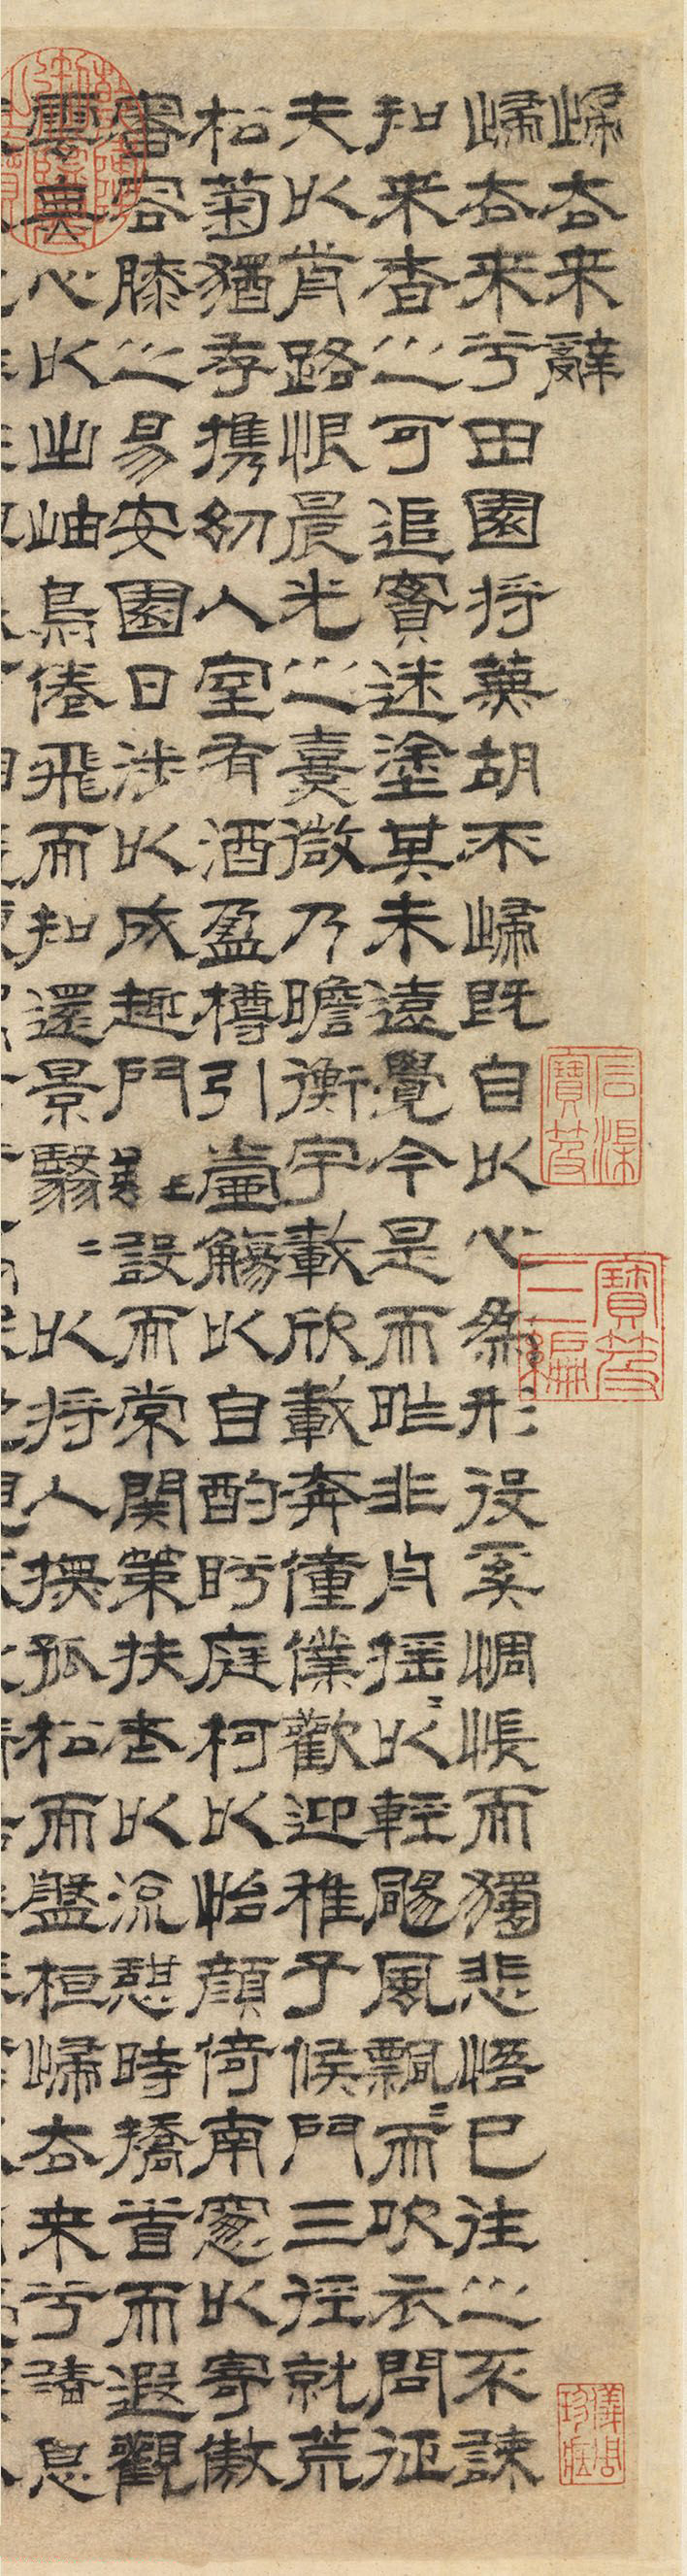 歸去来辭
歸去来兮田園将蕪胡不歸既自以心為形役奚惆悵而獨悲悟已往之不諫
知来者之可追實迷塗其未遠覺今是而昨非舟摇〻以輕颺風飄〻而吹衣問征
夫以前路恨晨光之熹微乃瞻衡宇載欣載奔僮僕歡迎稚子候門三徑就荒
松菊猶存携幼入室有酒盈樽引壺觴以自酌眄庭柯以怡顔倚南窓以寄傲
審容膝之易安園日涉以成趣門雖設而常関策扶老以流憩時撟首而遐觀
雲無心以出岫鳥倦飛而知還景翳〻以将入撫孤松而盤桓歸去来兮請息
石渠寶笈
寶笈三編
儀周珍藏